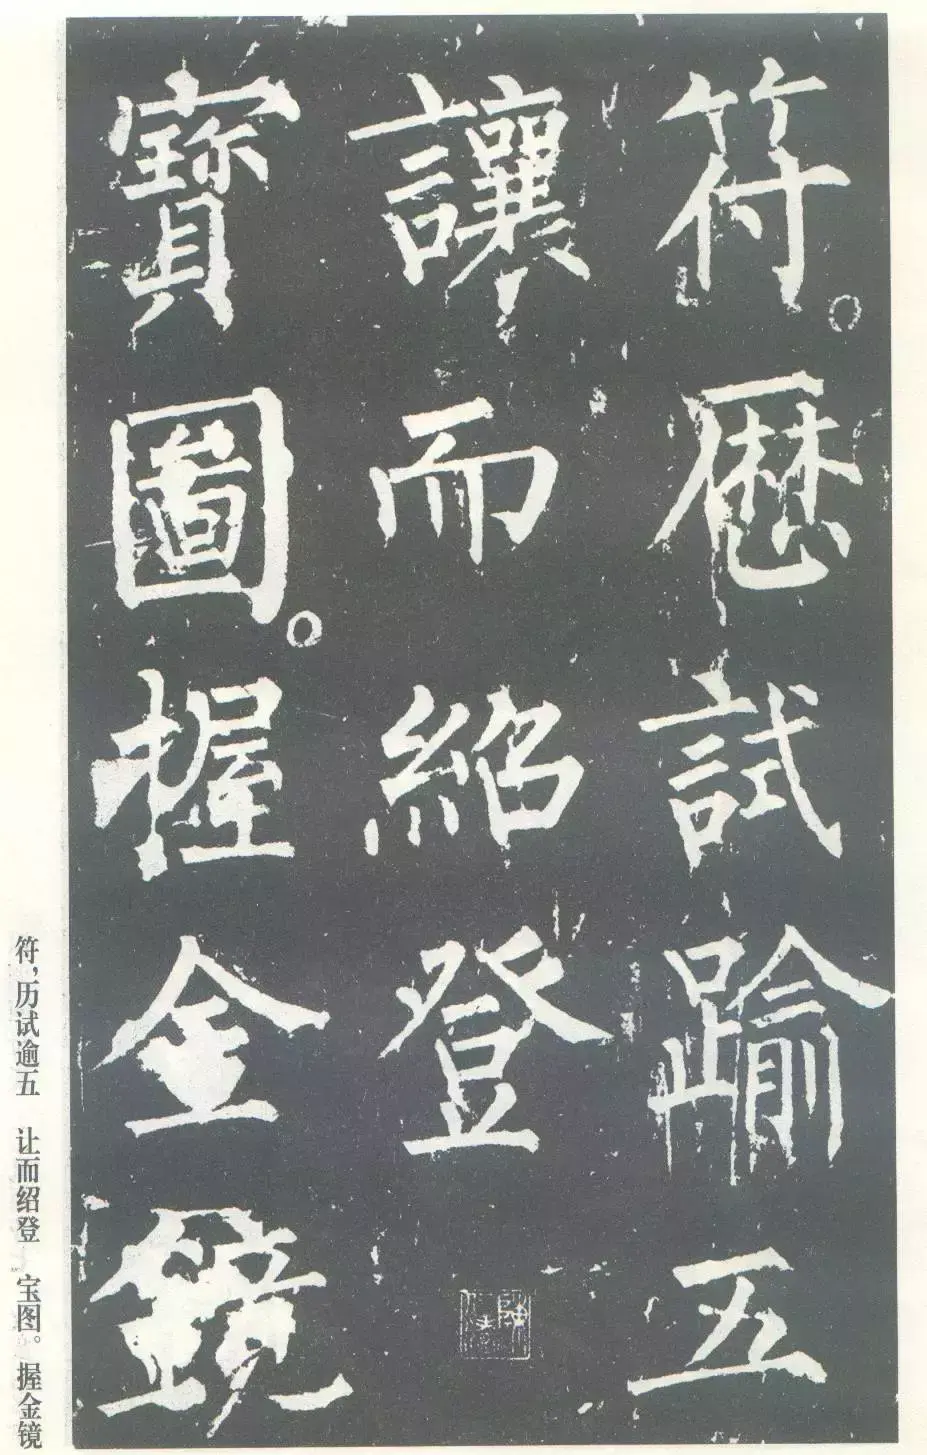 符。歷試踰五
讓而紹登
寶圖。握金鏡
符，历试逾五　让而绍登　宝图。　握金镜